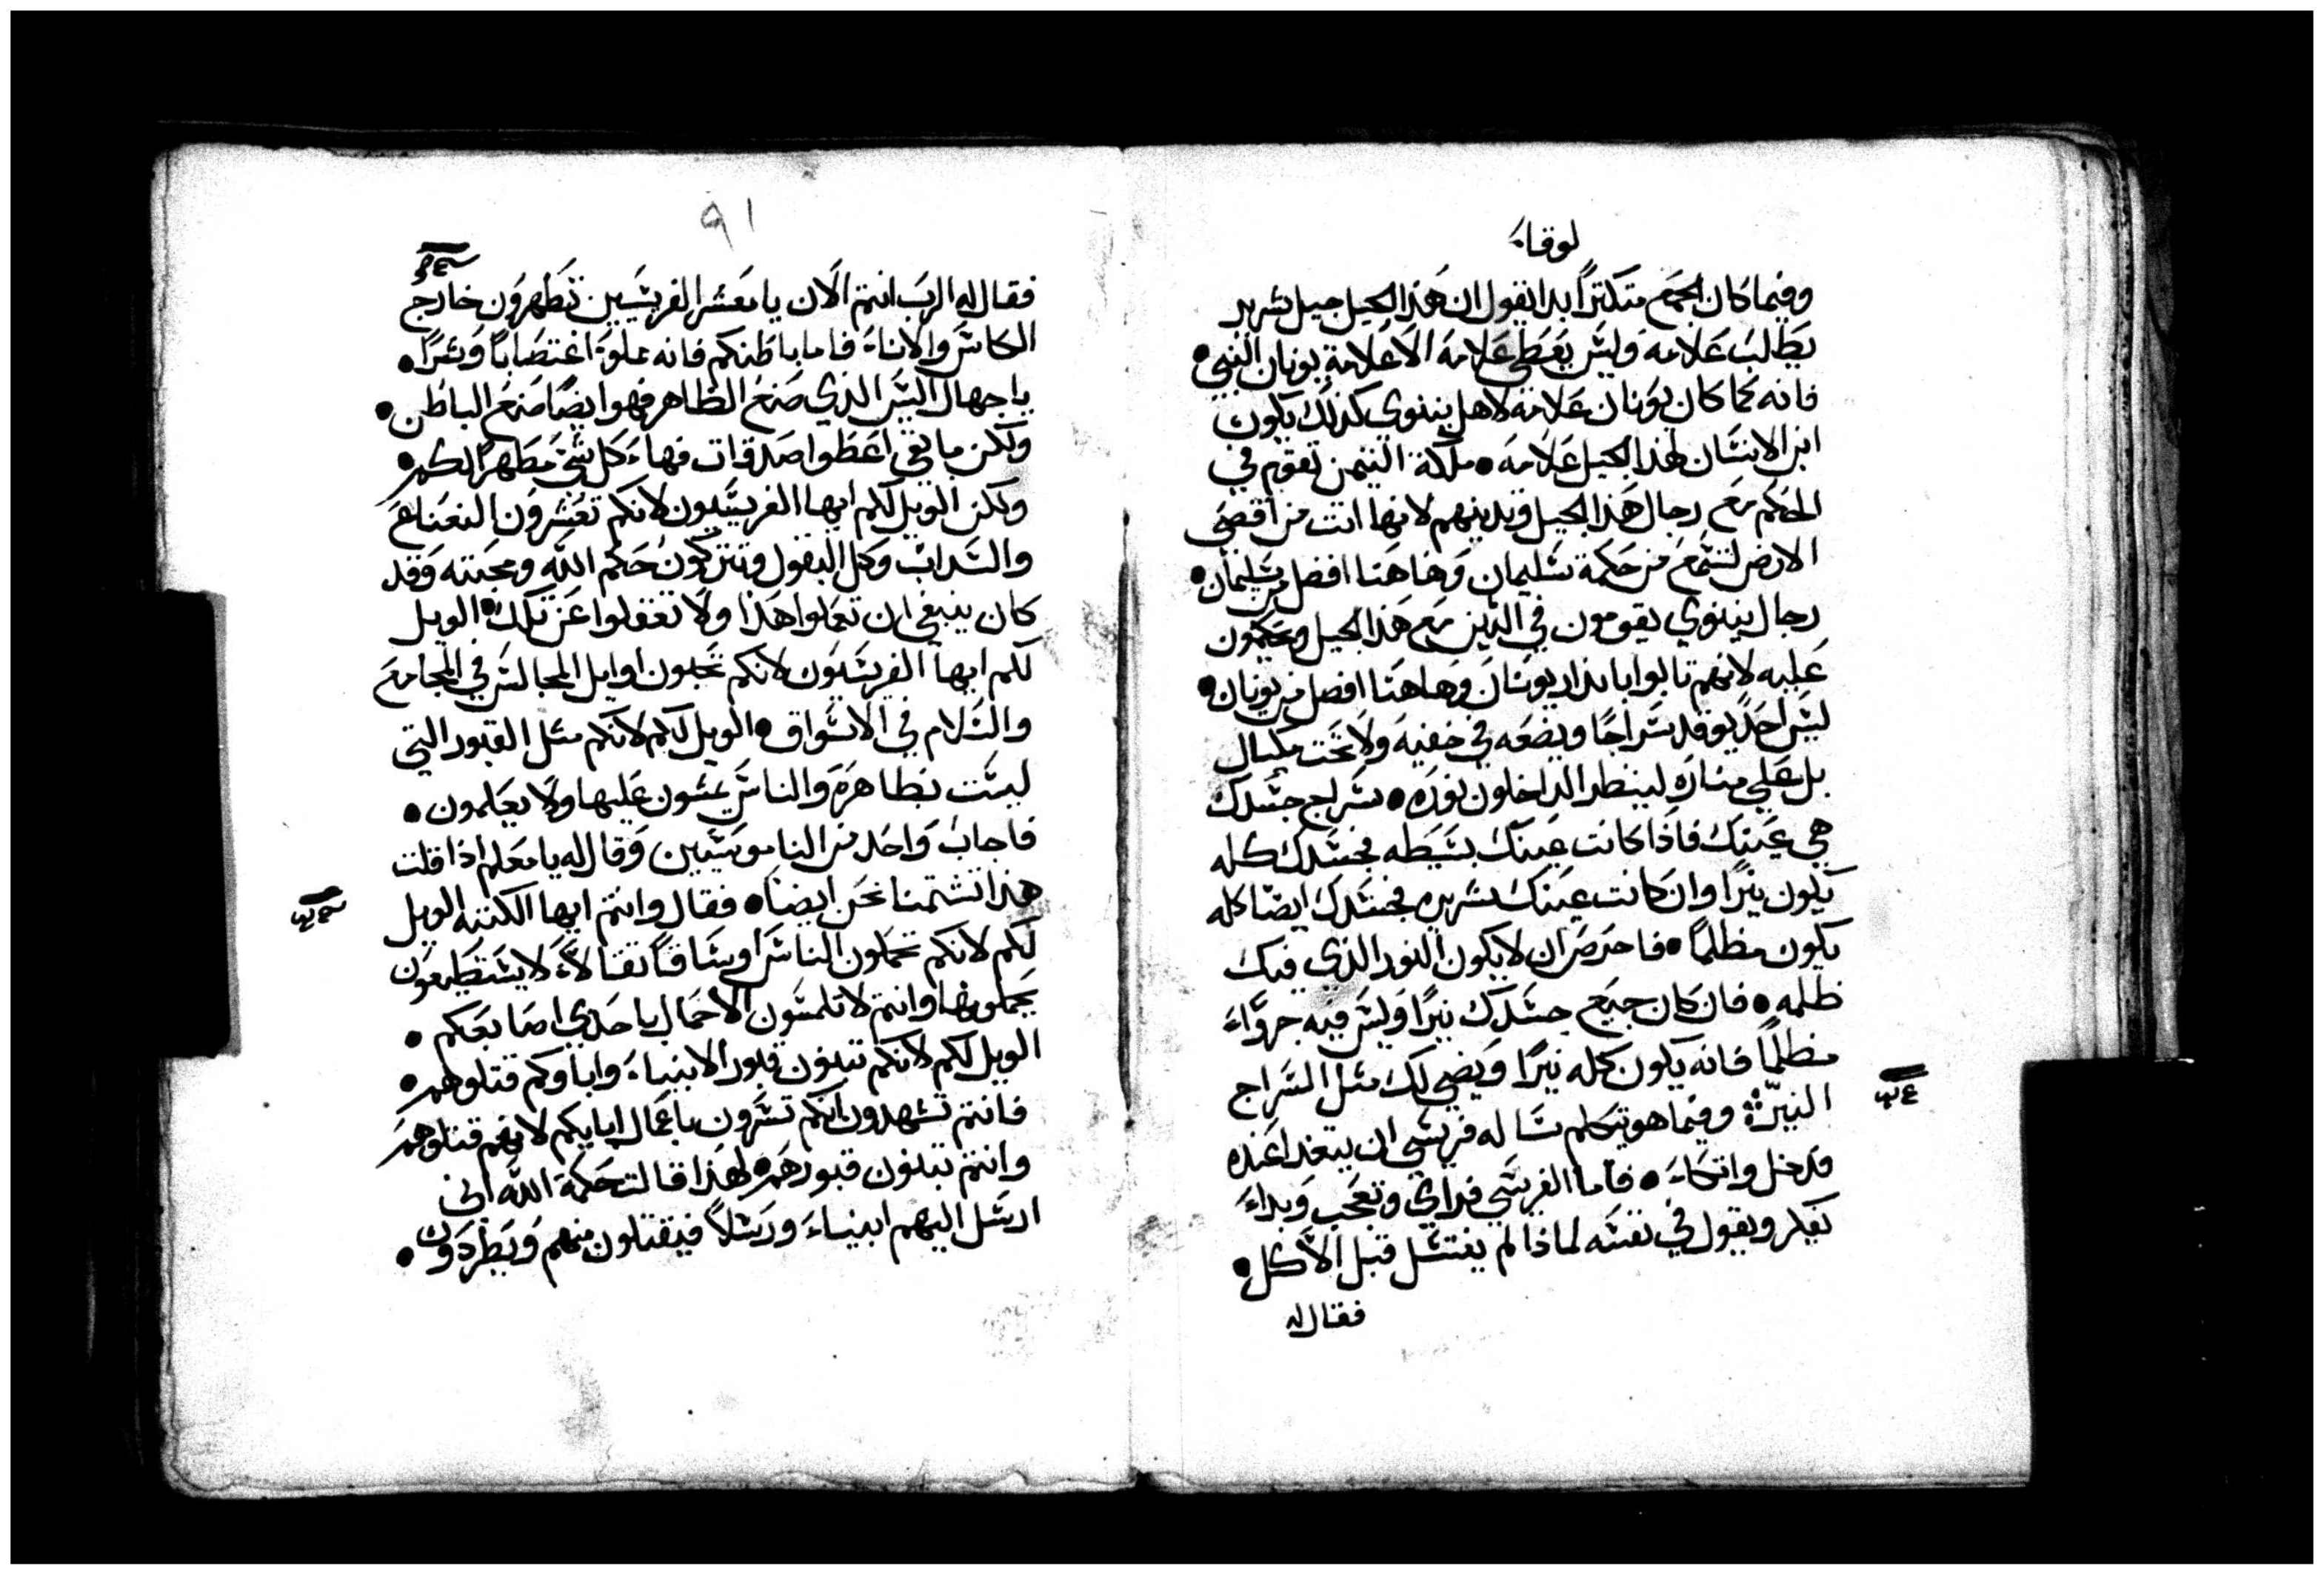 لوقا
وفيما كان الجمع متكترًا بدا يقول ان هذا الجيل جيل شرير
يطلب علامه وليس يعطى علامة الا علامة يونان النبي •
فانه كما كان يونان علامة لاهل نينوي كذلك يكون
ابن الانسان لهذا الجيل علامه • ملكة التيمن تقوم في
الحكم مع رجال هذا الجيل وتدينهم لانها اتت من اقصى
الارض لتسمع من حكمة سليمان وهاهنا افضل من سليمان •
رجال نينوي يقومون في الدين مع هذا الجيل ويحكمون
عليه لانهم تابوا بانذار يونان وهاهنا افضل من يونان •
ليس احد يوقد سراجًا ويضعه في خفيه ولا تحت مكيال
بل على مناره لينظر الداخلون نوره • سراج جسدك
هي عينك فاذا كانت عينك بسيطه فجسدك كله
يكون نيرًا وان كانت عينك شريره فجسدك ايضا كله
يكون مظلمًا • فاحرص ان لا يكون النور الذي فيك
ظلمه • فان كان جميع جسدك نيرًا وليس فيه جزواء
مظلمًا فانه يكون كله نيرًا ويضي لك مثل السراج
النير وفيما هو يتكلم ساله فريسي ان يتغدا عنده
فدخل واتكاء • فاما الفريسي فراي وتعجب وبداء
يفكر ويقول في نفسه لماذا لم يغتسل قبل الاكل •
فقال له
٩١
فقال له الرب انتم الان يا معشر الفريسيين تطهرون خارج
الكاس والاناء فاما باطنكم فانه مملوة اغتصابًا وشرًا •
يا جهال اليس الذي صنع الظاهر فهو ايضًا صنع الباطن •
ولكن ما بقي اعطوا صدقات فهاء كل شي مطهرًا لكم •
ولكن الويل لكم ايها الفريسيون لانكم تعشرون النعناع
والسداب وكل البقول وتتركون حكم الله ومحبته وقد
كان ينبغي ان تعملوا هذا ولا تغفلوا عن تلك • الويل
لكم ايها الفريسيون لانكم تحبون اوايل المجالس في المجامع
والسلام في الاسواق • الويل لكم لانكم مثل القبور التي
ليست بظاهرة والناس يمشون عليها ولا يعلمون •
فاجاب واحد من الناموسيين وقال له يا معلم اذا قلت
هذا تشتمنا نحن ايضًا • فقال وانتم ايها الكتبه الويل
لكم لانكم تحملون الناس اوساقًا ثقالاً لا يستطيعون
يحملونها وانتم لا تلمسون الاحمال باحدي اصابعكم •
الويل لكم لانكم تبنون قبور الانبياء واباوكم قتلوهم •
فانتم تشهدون انكم تسرون باعمال ابايكم لانهم قتلوهم
وانتم تبنون قبورهم • لهذا قالت حكمة الله اني
ارسل اليهم انبياء ورسلاً فيقتلون منهم ويطردون •